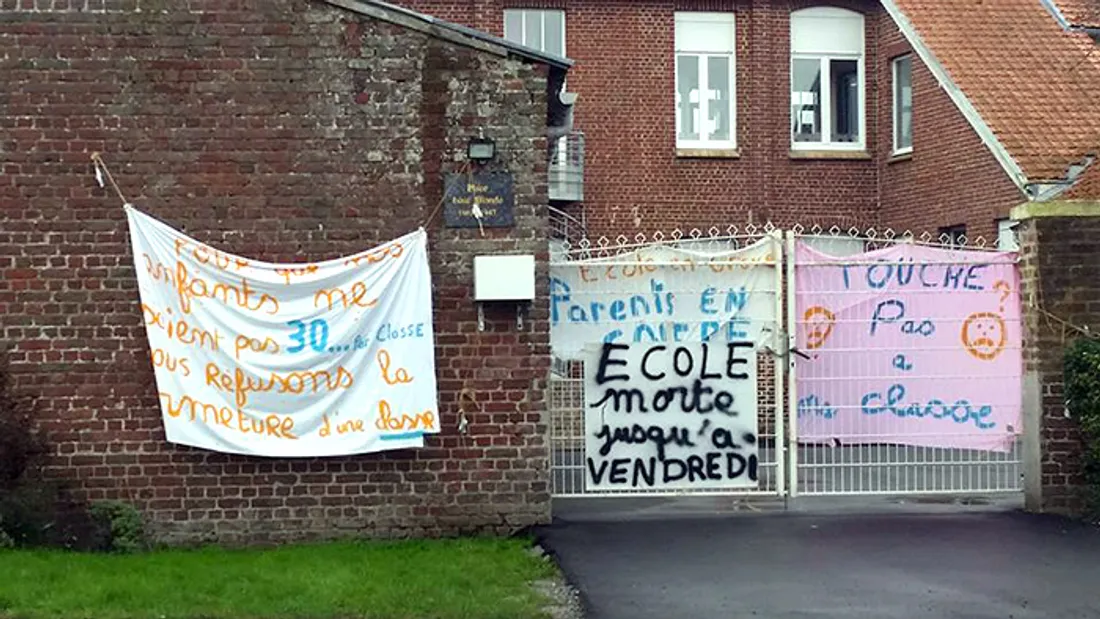 POUR que nos
enfants ne
soient pas 30... PAR CLASSE
nous Réfusons la
fermeture d'une classe
Place
Ecole en Grève
Parents EN
COLERE
ECOLE
morte
jusqu'à
VENDREDI
TOUCHE
Pas
a
classe
?